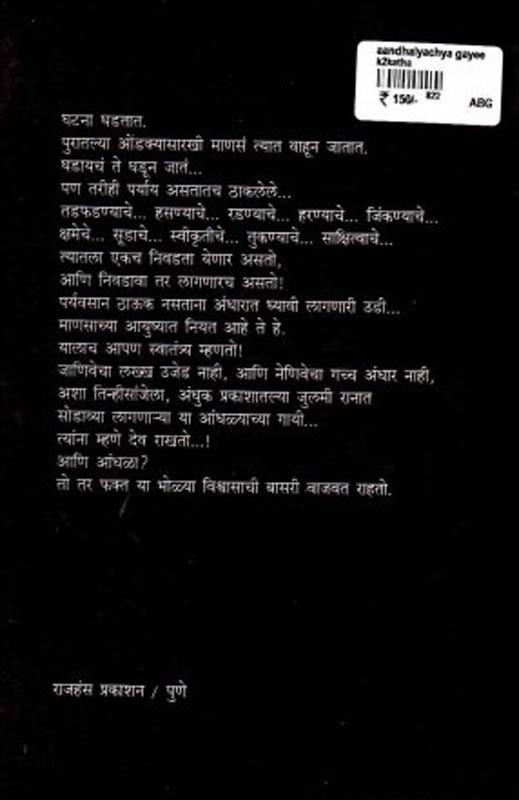 aandhalyachya gayee
k2katha
₹ 150/- 822
ABG
घटना घडतात.
पुरातल्या ओंडक्यासारखी माणसं त्यात वाहून जातात.
घडायचं ते घडून जातं...
पण तरीही पर्याय असतातच ठाकलेले...
तडफडण्याचे... हसण्याचे... रडण्याचे... हरण्याचे... जिंकण्याचे...
क्षमेचे... सूडाचे... स्वीकृतीचे... तुकण्याचे... साक्षित्वाचे...
त्यातला एकच निवडता येणार असतो,
आणि निवडावा तर लागणारच असतो!
पर्यवसान ठाऊक नसताना अंधारात घ्यावी लागणारी उडी...
माणसाच्या आयुष्यात नियत आहे ते हे.
यालाच आपण स्वातंत्र्य म्हणतो!
जाणिवेचा लख्ख उजेड नाही, आणि नेणिवेचा गच्च अंधार नाही,
अशा तिन्हीसांजेला, अंधुक प्रकाशातल्या जुलमी रानात
सोडाव्या लागणाऱ्या या आंधळ्याच्या गायी...
त्यांना म्हणे देव राखतो...!
आणि आंधळा?
तो तर फक्त या भोळ्या विश्वासाची बासरी वाजवत राहतो.
राजहंस प्रकाशन / पुणे